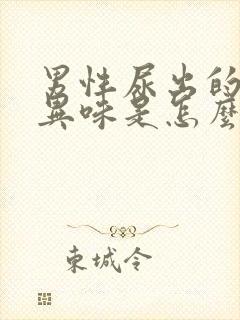 男性尿出的
異味是怎麼
東城令